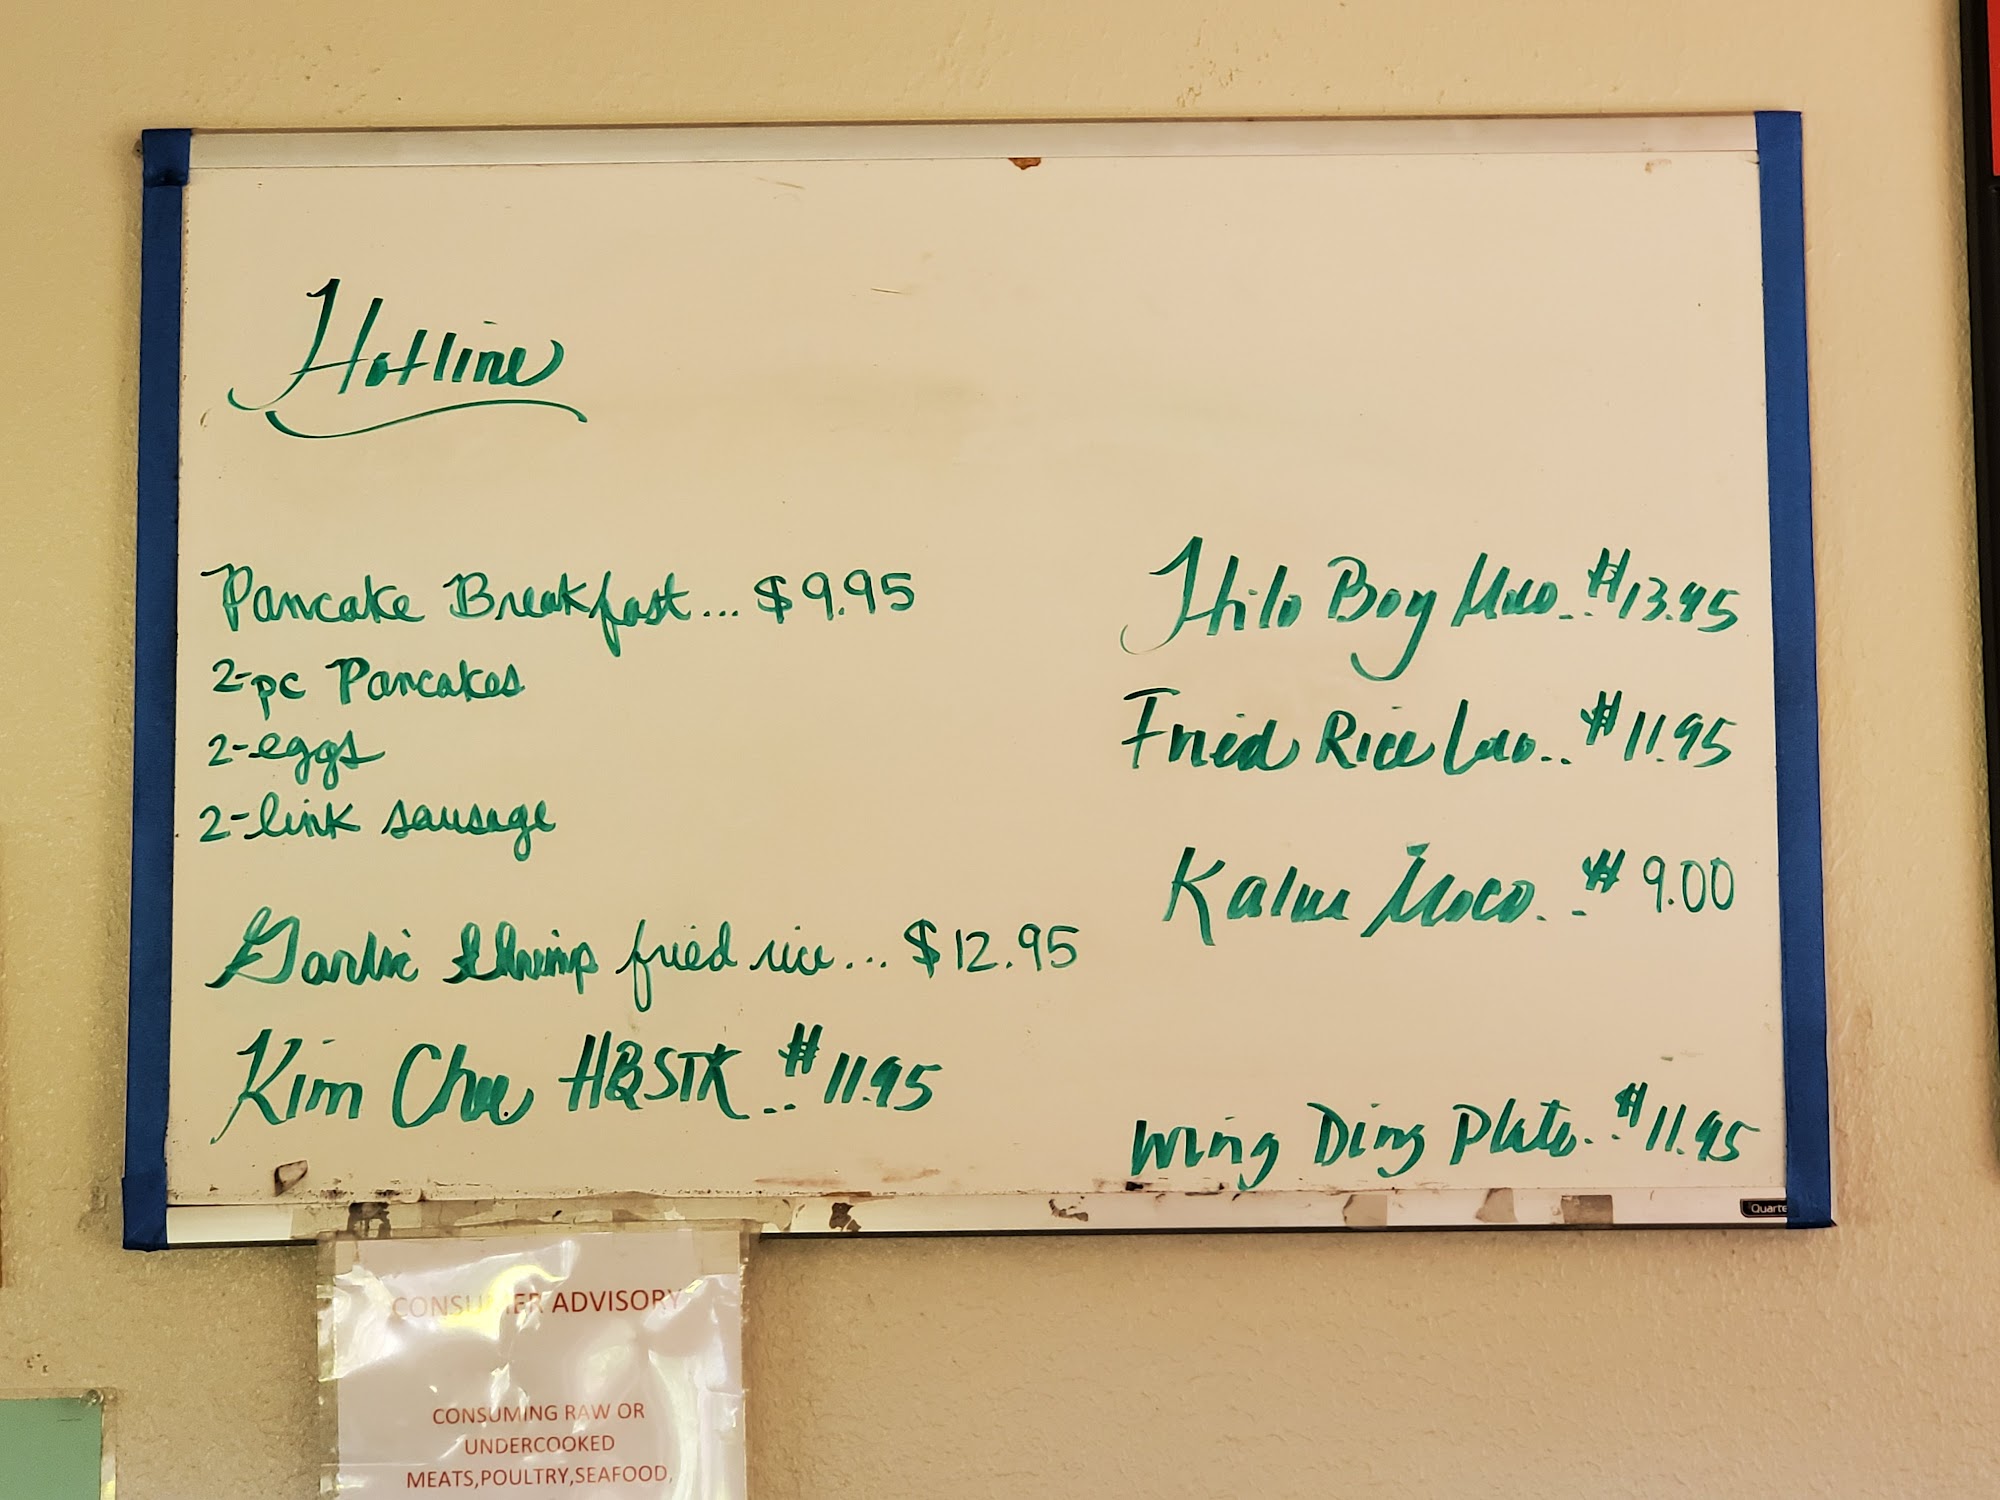 Hotline
Pancake Breakfast... $9.95
2-pc Pancakes
2-eggs
2-link sausage
Garlic Shrimp fried rice... $12.95
Kim Chee HBSTK... $11.95
Hilo Boy Moco... $13.95
Fried Rice Loco... $11.95
Kalua Moco... $9.00
Wing Ding Plate... $11.95
Quarte
CONSUMER ADVISORY
CONSUMING RAW OR
UNDERCOOKED
MEATS,POULTRY,SEAFOOD,